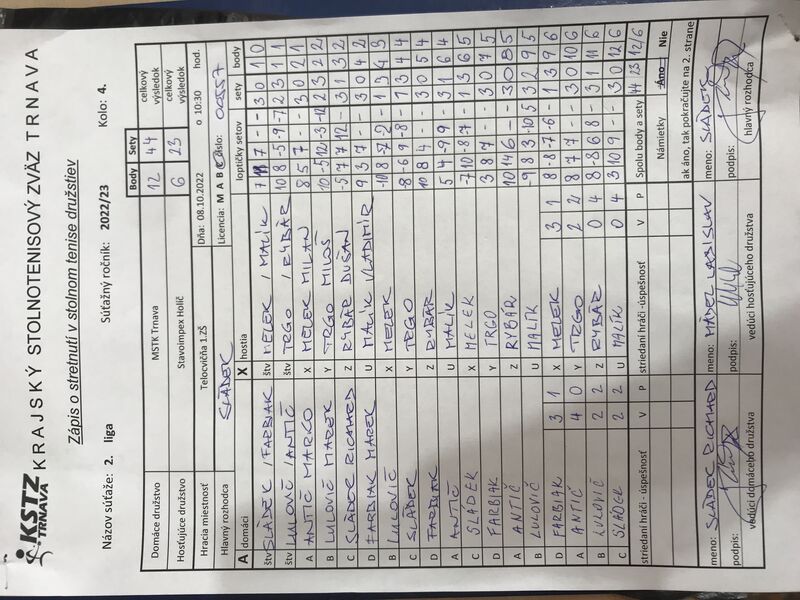 KSTZ TRNAVA
KRAJSKÝ STOLNOTENISOVÝ ZVÄZ TRNAVA
Zápis o stretnutí v stolnom tenise družstiev
Názov súťaže: 2. liga Súťažný ročník: 2022/23 Kolo: 4.
Body Sety
Domáce družstvo MSTK Trnava 12 44 celkový výsledok
Hosťujúce družstvo Stavoimpex Holíč 6 23 celkový výsledok
Hracia miestnosť Telocvičňa 1.ZŠ Dňa: 08.10.2022 o 10:30 hod.
Hlavný rozhodca SLÁDEK Licencia: M A B C číslo: 00557
A domáci X hostia loptičky setov sety body
štv SLÁDEK / FARBIAK štv MELEK / MALÍK 7 11 7 - - 3 0 1 0
štv LULOVIČ / ANTIČ štv TRGO / RYBÁR 10 8 -5 -9 -7 2 3 1 1
A ANTIČ MARKO X MELEK MILAN 8 5 7 - - 3 0 2 1
B LULOVIČ MAREK Y TRGO MILOŠ 10 -5 12 -3 -12 2 3 2 2
C SLÁDEK RICHARD Z RYBÁR DUŠAN -5 7 7 12 - 3 1 3 2
D FARBIAK MAREK U MALÍK VLADIMÍR 9 3 7 - - 3 0 4 2
B LULOVIČ X MELEK -10 8 -7 -2 - 1 3 4 3
C SLÁDEK Y TRGO 8 -6 -9 -8 - 1 3 4 4
D FARBIAK Z RYBÁR 10 8 4 - - 3 0 5 4
A ANTIČ U MALÍK 5 4 -9 9 - 3 1 6 4
C SLÁDEK X MELEK -7 10 -8 -7 - 1 3 6 5
D FARBIAK Y TRGO 3 8 7 - - 3 0 7 5
A ANTIČ Z RYBÁR 10 14 6 - - 3 0 8 5
B LULOVIČ U MALÍK -9 8 3 -10 5 3 2 9 5
D FARBIAK 3 1 X MELEK 3 1 8 -8 -7 -6 - 1 3 9 6
A ANTIČ 4 0 Y TRGO 2 2 8 7 7 - - 3 0 10 6
B LULOVIČ 2 2 Z RYBÁR 0 4 8 -8 6 8 - 3 1 11 6
C SLÁDEK 2 2 U MALÍK 0 4 3 10 9 - - 3 0 12 6
striedaní hráči - úspešnosť V P striedaní hráči -úspešnosť V P Spolu body a sety 44 23 12/6
Námietky Áno Nie
ak áno, tak pokračujte na 2. strane
meno: SLÁDEK RICHARD meno: MÁDEL LADISLAV meno: SLÁDEK
podpis: podpis: podpis:
vedúci domáceho družstva vedúci hosťujúceho družstva hlavný rozhodca